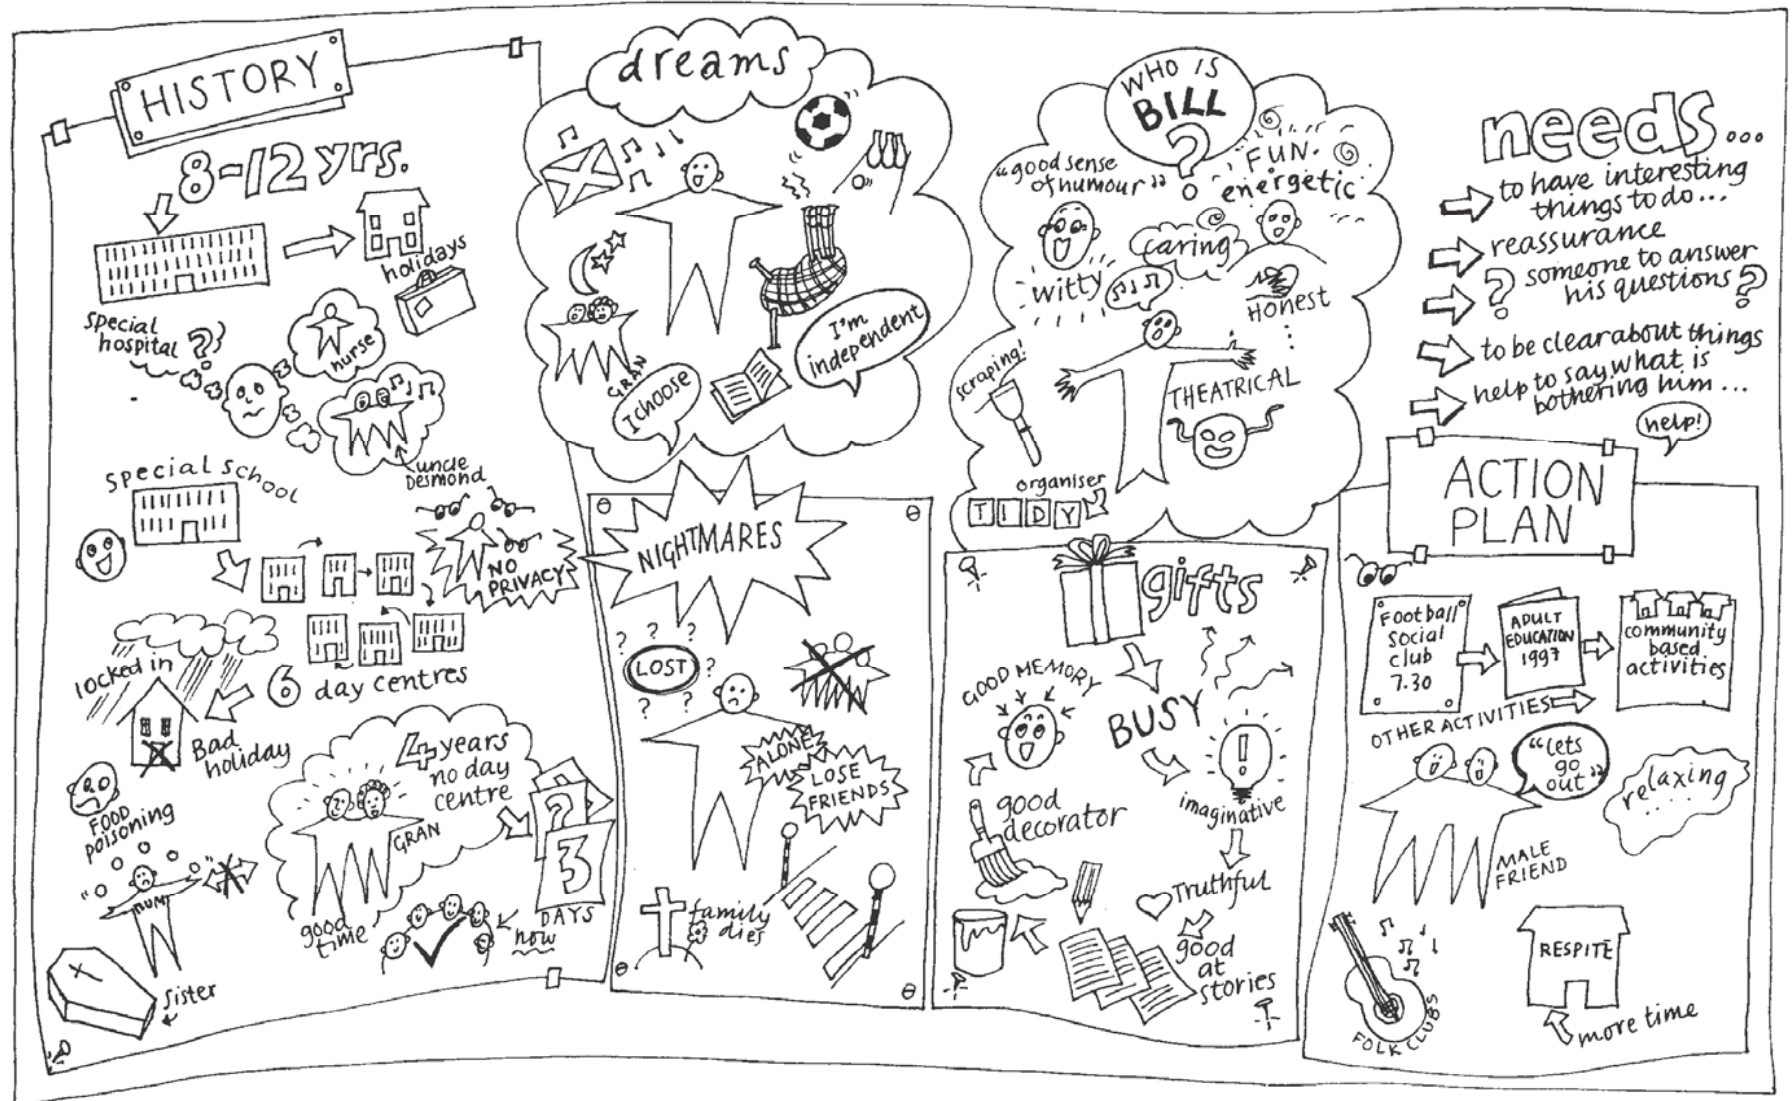 HISTORY
8-12 yrs.
holidays
special
hospital ?
nurse
uncle
Desmond
special school
NO
PRIVACY
6 day centres
locked in
Bad
holiday
FOOD
poisoning
MUM
sister
4 years
no day
centre
GRAN
good
time
?
3
DAYS
now
dreams
GRAN
I choose
I'm
independent
NIGHTMARES
? ? ?
LOST
?
? ?
ALONE
LOSE
FRIENDS
family
dies
WHO IS
BILL
?
"good sense
of humour"
FUN.
energetic
witty
caring
HONEST
scraping!
THEATRICAL
organiser
TIDY
gifts
GOOD MEMORY
BUSY
!
imaginative
good
decorator
Truthful
good
at
stories
needs...
to have interesting
things to do...
reassurance
? someone to answer
his questions ?
to be clear about things
help to say what is
bothering him...
help!
ACTION
PLAN
Football
Social
club
7.30
ADULT
EDUCATION
1997
community
based
activities
OTHER ACTIVITIES
"lets
go
out"
relaxing
MALE
FRIEND
FOLK CLUBS
RESPITE
more time